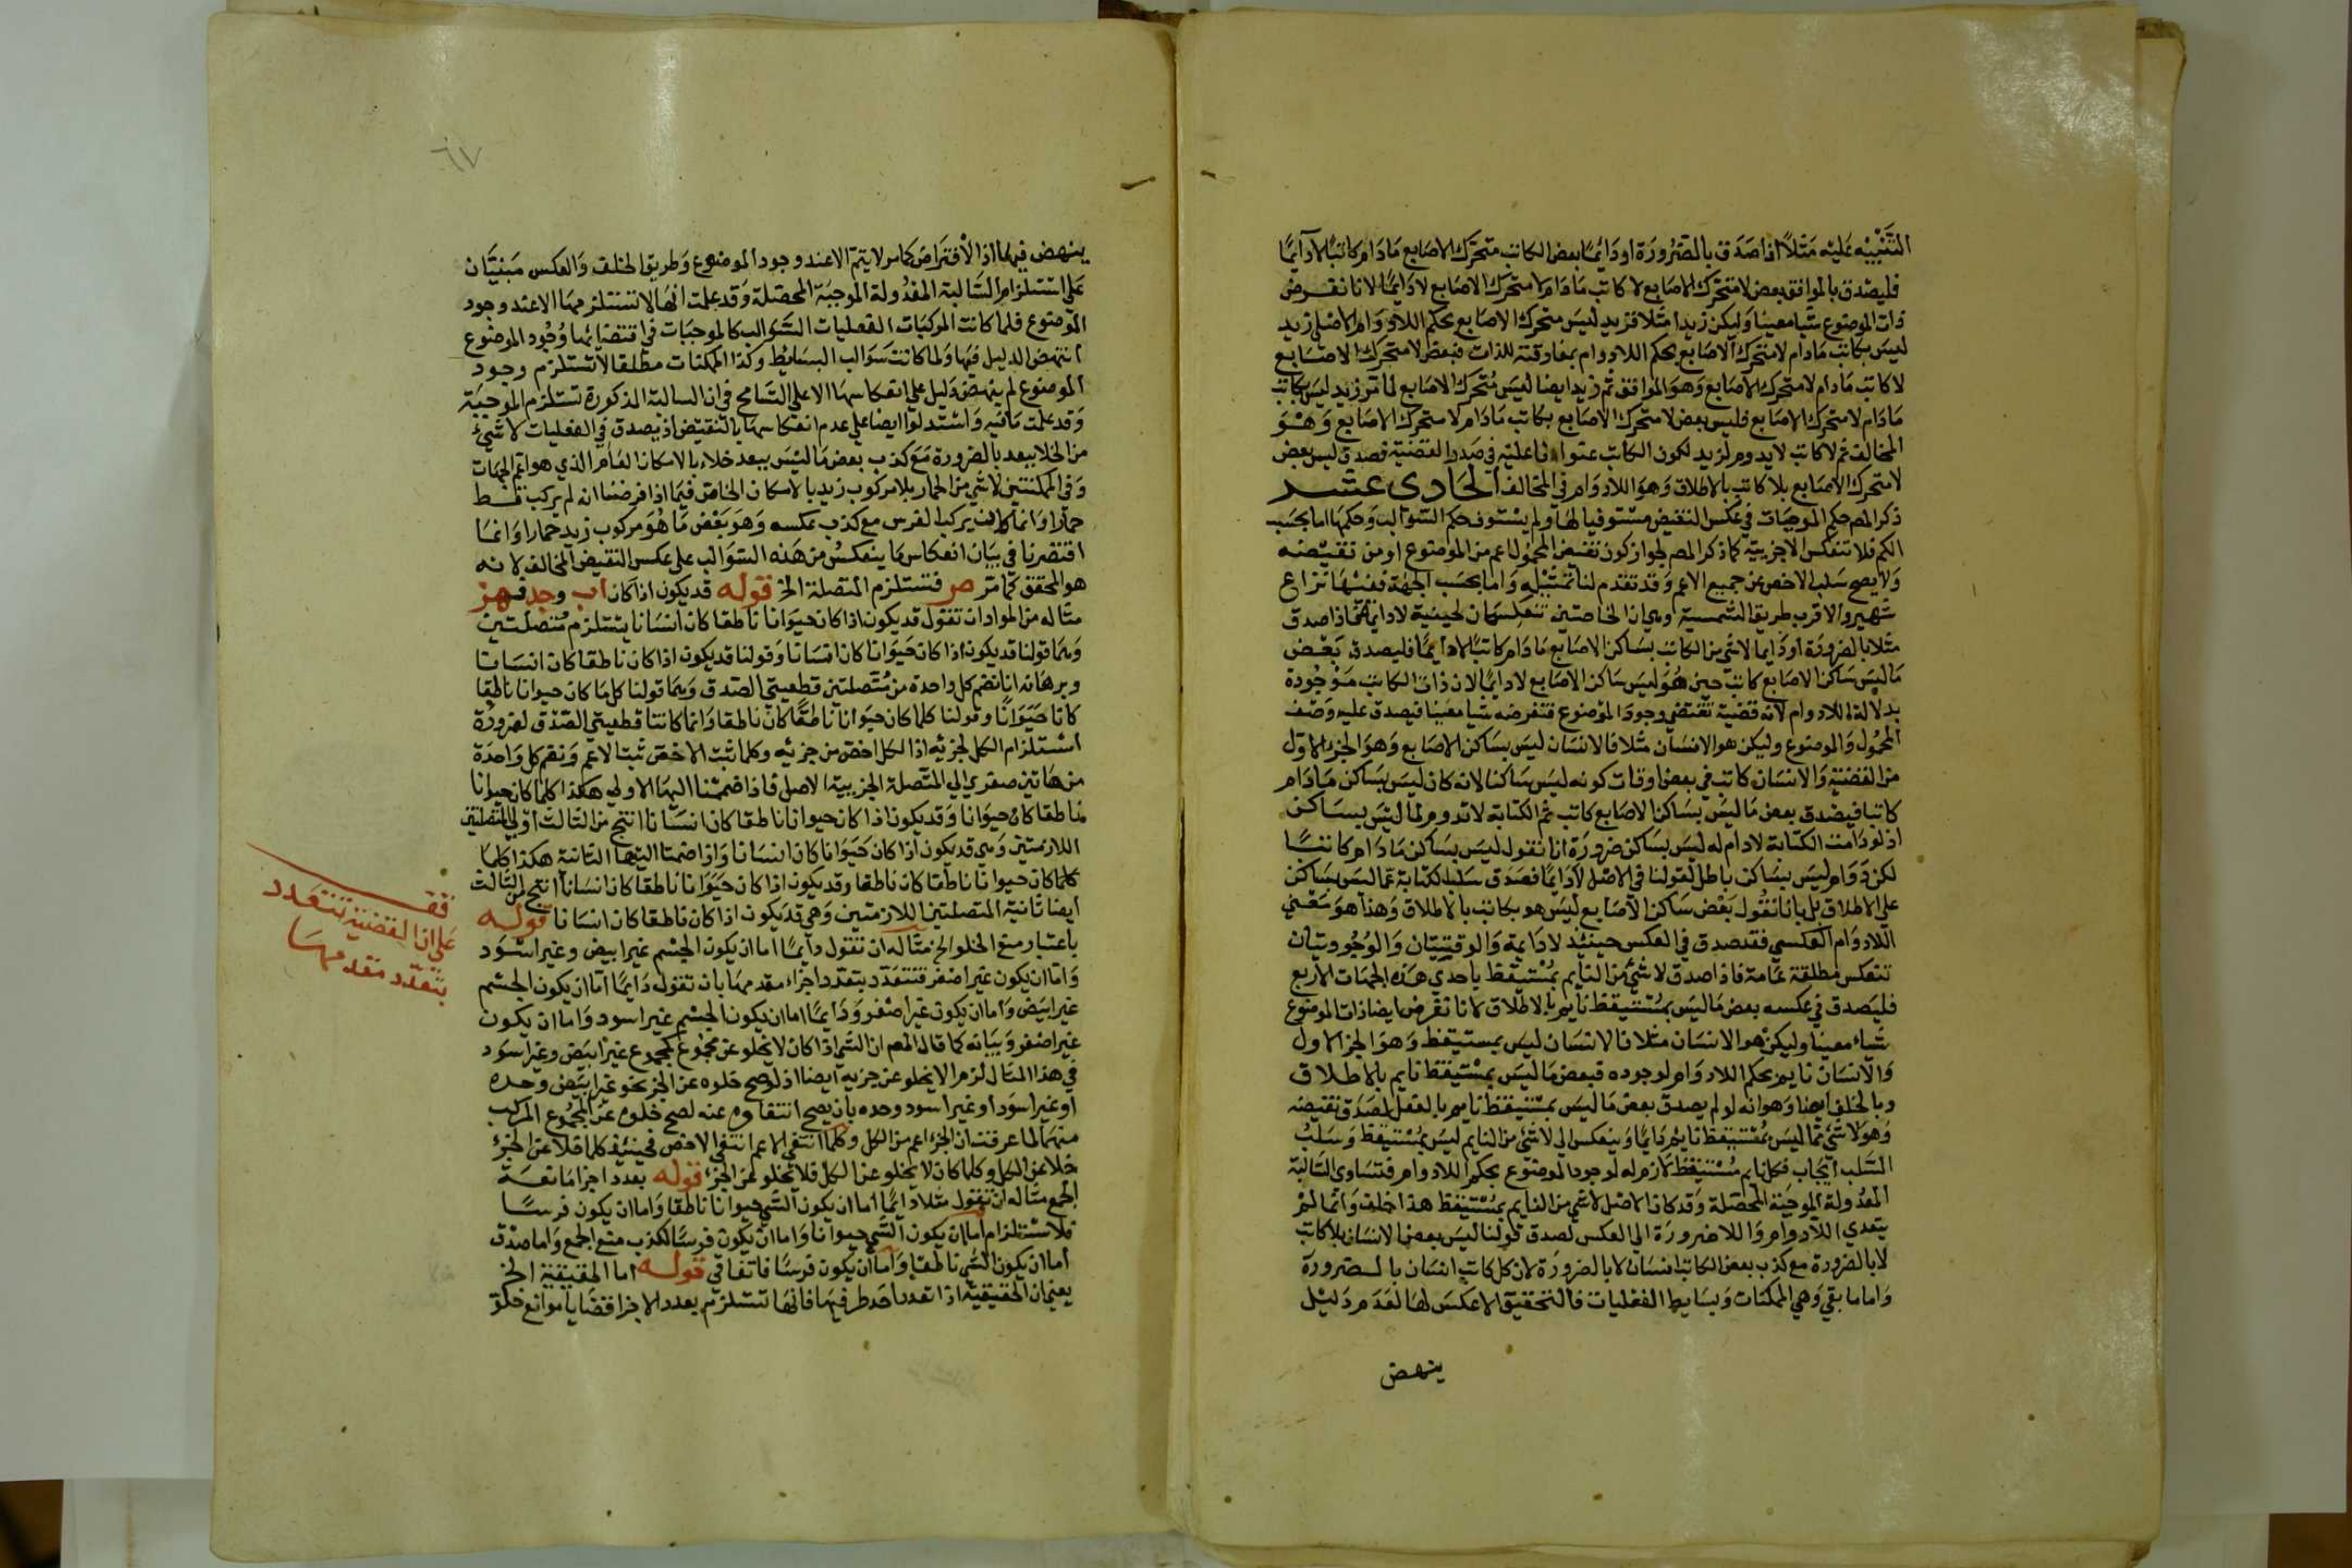 التنبيه عليه مثلا اذا صدق بالضرورة او دايما بعض الكاتب متحرك الاصابع مادام كاتبا لا دايما
فليصدق بالموافق بعض لا متحرك الاصابع لا كاتب مادام لا متحرك الاصابع لا دايما لانا نفرض
ذات الموضوع شيا معينا وليكن زيدا مثلا فزيد ليس متحرك الاصابع بحكم اللادوام الاصلي زيد
ليس بكاتب مادام لا متحرك الاصابع بحكم اللادوام بمفارقته للذات فبعض لا متحرك الاصابع
لا كاتب مادام لا متحرك الاصابع وهو الموافق ثم زيد ايضا ليس متحرك الاصابع لما مر زيد ليس بكاتب
مادام لا متحرك الاصابع فليس بعض لا متحرك الاصابع بكاتب مادام لا متحرك الاصابع وهو
المخالف ثم لا كاتب لا يدوم لزيد لكون الكاتب عنوانا عليه في صدر القضية فصدق ليس بعض
لا متحرك الاصابع بلا كاتب بالاطلاق وهو اللادوام في المخالف الحادي عشر
ذكر المص حكم الموجبات في عكس النقيض مستوفيا لها ولم يستوف حكم السوالب وحكمها اما بحسب
الكم فلا تنعكس الا جزيية كما ذكر المص لجواز كون نقيض المحمول اعم من الموضوع او من نقيضه
ولا يصح سلب الاخص عن جميع الاعم وقد تقدم لنا تمثيله واما بحسب الجهة ففيها نزاع
شهير والاقرب طريق الشمسية وهي ان الخاصتين تنعكسان لحينية لا دايمة فاذا صدق
مثلا بالضرورة او دايما لا شي من الكاتب بساكن الاصابع مادام كاتبا لا دايما فليصدق بعض
ما ليس ساكن الاصابع كاتب حين هو ليس ساكن الاصابع لا دايما لان ذات الكاتب موجودة
بدلالة اللادوام لانه قضية تقتضي وجود الموضوع فنفرضه شيا معينا فيصدق عليه وصف
المحمول والموضوع وليكن هو الانسان مثلا فالانسان ليس بساكن الاصابع وهو الجزء الاول
من القضية والانسان كاتب في بعض اوقات كونه ليس ساكنا لانه كان ليس بساكن مادام
كاتبا فيصدق بعض ما ليس بساكن الاصابع كاتب ثم الكتابة لا تدوم لما ليس بساكن
اذ لو دامت الكتابة لا دام له ليس بساكن ضرورة انا نقول ليس بساكن مادام كاتبا
لكن دوام ليس بساكن باطل لقولنا في الاصل لا دايما فصدق سلب الكتابة عما ليس بساكن
على الاطلاق بل بانا نقول بعض ساكن الاصابع ليس هو بكاتب بالاطلاق وهذا هو معنى
اللادوام العكسي فقد صدق في العكس حينئذ لا دايمة والوقتيتان والوجوديتان
تنعكس مطلقة عامة فاذا صدق لا شي من النايم بمستيقظ باحدي هذه الجهات الاربع
فليصدق في عكسه بعض ما ليس بمستيقظ نايم بالاطلاق لانا نفرض ايضا ذات الموضوع
شياء معينا وليكن هو الانسان مثلا فالانسان ليس بمستيقظ وهو الجزء الاول
والانسان نايم بحكم اللادوام لوجوده فبعض ما ليس بمستيقظ نايم بالاطلاق
وبالخلف ايضا وهو انه لو لم يصدق بعض ما ليس بمستيقظ نايم بالفعل لصدق نقيضه
وهو لا شي مما ليس بمستيقظ نايم دايما وينعكس الي لا شي من النايم ليس بمستيقظ وسلب
السلب ايجاب فكل نايم مستيقظ لازم له لوجود الموضوع بحكم اللادوام فتساوي السالبة
المعدولة الموجبة المحصلة وقد كان الاصل لا شي من النايم بمستيقظ هذا خلف وانما لم
يتعدي اللادوام واللاضرورة الي العكس لصدق قولنا ليس بعض الانسان بلا كاتب
لا بالضرورة مع كذب بعض الكاتب انسان لا بالضرورة لان كل كاتب انسان بالضرورة
واما ما بقي وهي الممكنات وبسايط الفعليات فالتحقيق الا عكس لها لعدم دليل
ينهض
٦٧
ينهض فيهما اذ الافتراض كما مر لا يتم الا عند وجود الموضوع وطريق الخلف والعكس مبنيان
على استلزام السالبة المعدولة الموجبة المحصلة وقد علمت انها لا تستلزمها الا عند وجود
الموضوع فلما كانت المركبات الفعليات السوالب كالموجبات في اقتضائها وجود الموضوع
انتهض الدليل فيها ولما كانت سوالب البسائط وكذا الممكنات مطلقا لا تستلزم وجود
الموضوع لم ينهض دليل على انعكاسها الا على التسامح في ان السالبة المذكورة تستلزم الموجبة
وقد علمت ما فيه واستدلوا ايضا على عدم انعكاسها بالنقيض اذ يصدق في الفعليات لا شيء
من الخلا ببعد بالضرورة مع كذب بعض ما ليس ببعد خلاء بالامكان العام الذي هو اعم الجهات
وفي الممكنتين لا شي من الحمار بلا مركوب زيد بالامكان الخاص فيما اذا فرضنا انه لم يركب قط
حمارا وانما كان يركب الفرس مع كذب عكسه وهو بعض ما هو مركوب زيد حمارا وانما
اقتصرنا في بيان انعكاس ما ينعكس من هذه السوالب على عكس النقيض المخالف لانه
هو المحقق كما مر ص فتستلزم المتصلة الخ قوله قد يكون اذا كان اب وجد فهز
مثاله من المواد ان تقول قد يكون اذا كان حيوانا ناطقا كان انسانا يستلزم متصلتين
وهما قولنا قد يكون اذا كان حيوانا كان انسانا وقولنا قد يكون اذا كان ناطقا كان انسانا
وبرهانه انا نضم كل واحدة من متصلتين قطعيتي الصدق وهما قولنا كل ما كان حيوانا ناطقا
كانا حيوانا وقولنا كلما كان حيوانا ناطقا كان ناطقا وانما كانتا قطعيتي الصدق لضرورة
استلزام الكل لجزئه اذ الكل اخص من جزئه وكلما ثبت الاخص ثبت الاعم ونضم كل واحدة
من هاتين صغري الي المتصلة الجزيية الاصل فاذا ضممنا اليها الاولي هكذا كلما كان حيوانا
ناطقا كان حيوانا وقد يكون اذا كان حيوانا ناطقا كان انسانا انتج من الثالث اولي المتصلتين
اللازمتين وهي قد يكون اذا كان حيوانا كان انسانا واذا ضممنا اليها الثانية هكذا كلما
كلما كان حيوانا ناطقا كان ناطقا وقد يكون اذا كان حيوانا ناطقا كان انسانا انتج من الثالث
ايضا ثانية المتصلتين اللازمتين وهي قد يكون اذا كان ناطقا كان انسانا قوله
باعتبار منع الخلو الخ مثاله ان تقول دايما اما ان يكون الجسم غير ابيض وغير اسود
واما ان يكون غير اصفر فتتعدد بتعدد اجزاء مقدمها بان تقول دايما اما ان يكون الجسم
غير ابيض واما ان يكون غير اصفر ودايما اما ان يكون الجسم غير اسود واما ان يكون
غير اصفر وبيانه كما قال المص ان الشي اذا كان لا يخلو عن مجموع كمجموع غير ابيض وغير اسود
في هذا المثال لزم الا يخلو عن جزيه ايضا اذ لو صح خلوه عن الجزء نحو غير ابيض وحده
او غير اسود او غير اسود وحده بان يصح انتفاوه عنه لصح خلوه عن المجموع المركب
منهما لما عرفت ان الجزء اعم من الكل وكلما انتفي الاعم انتفي الاخص فحينئذ كلما خلا عن الجزء
خلا عن الكل وكلما كان لا يخلو عن الكل فلا يخلو عن الجزء قوله بعدد اجزا مانعة
الجمع مثاله ان تقول مثلا دايما اما ان يكون الشي حيوانا ناطقا واما ان يكون فرسا
فلا ستلزام اما ان يكون الشي حيوانا واما ان يكون فرسا لكذب منع الجمع واما صدق
اما ان يكون الشي ناطقا واما ان يكون فرسا فاتفاقي قوله اما الحقيقية الخ
يعني ان الحقيقية اذا تعدد احد طرفيها فانها تستلزم بعدد الاجزا قضايا موانع خلو
فقد
على ان القضية تتعدد
بتعدد مقدمها